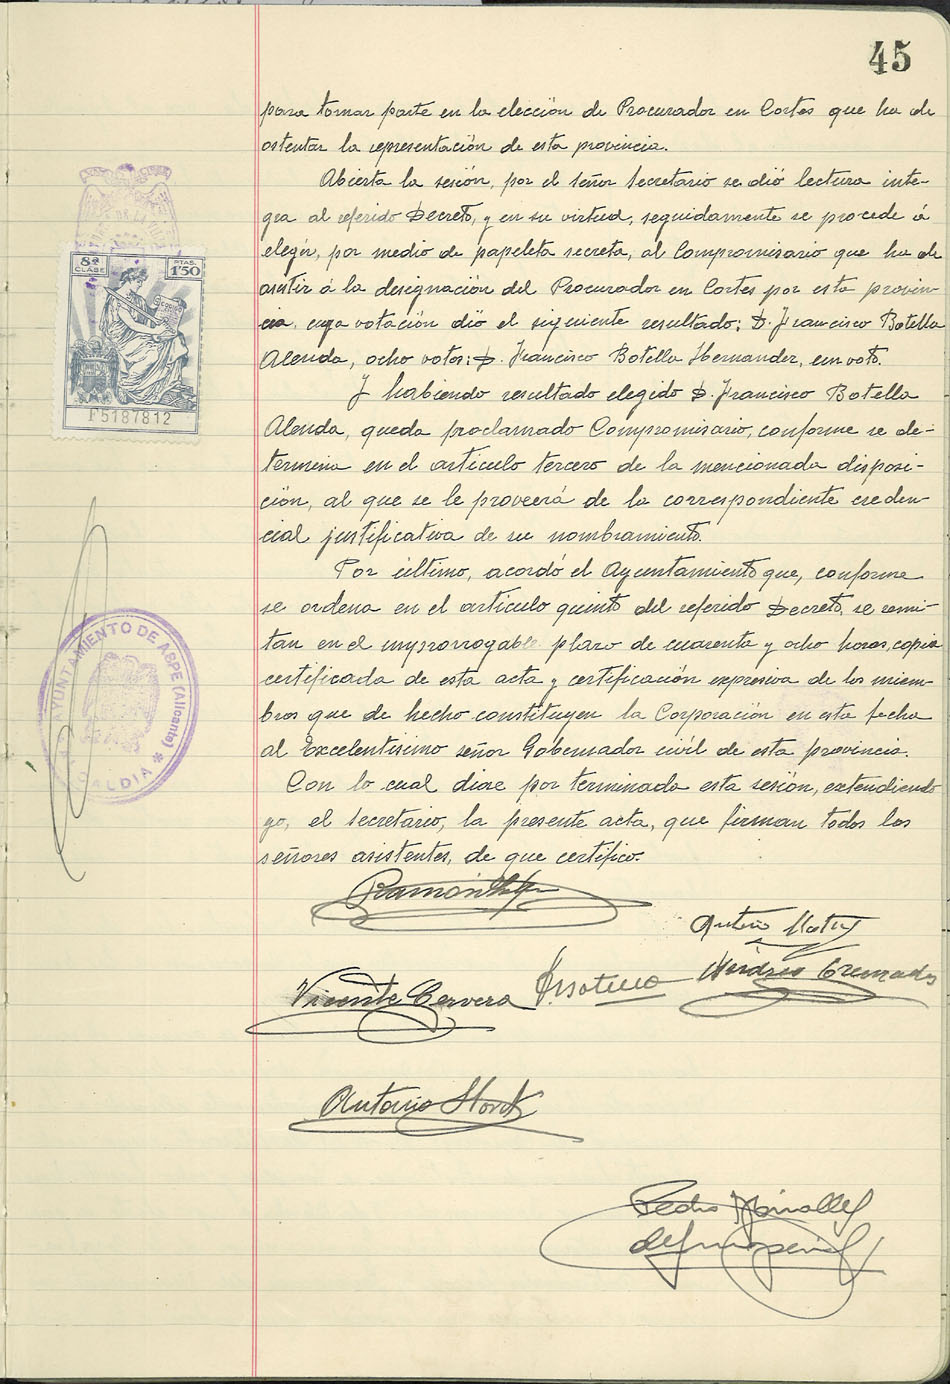 45
para tomar parte en la elección de Procurador en Cortes que ha de
ostentar la representación de esta provincia.
Abierta la sesión, por el señor Secretario se dió lectura ínte-
gra al referido Decreto, y en su virtud, seguidamente se procede á
elegir, por medio de papeleta secreta, al Compromisario que ha de
asistir á la designación del Procurador en Cortes por esta provin-
cia, cuya votación dió el siguiente resultado: D. Francisco Botella
Alenda, ocho votos; D. Francisco Botella Hernandez, un voto.
Y habiendo resultado elegido D. Francisco Botella
Alenda, queda proclamado Compromisario, conforme se de-
termina en el artículo tercero de la mencionada disposi-
ción, al que se le proveerá de la correspondiente creden-
cial justificativa de su nombramiento.
Por último, acordó el Ayuntamiento que, conforme
se ordena en el artículo quinto del referido Decreto, se remi-
tan en el improrrogable plazo de cuarenta y ocho horas, copia
certificada de esta acta y certificación expresiva de los miem-
bros que de hecho constituyen la Corporación en esta fecha
al Excelentísimo señor Gobernador civil de esta provincia.
Con lo cual dióse por terminada esta sesión, extendiendo
yo, el Secretario, la presente acta, que firman todos los
señores asistentes, de que certifico.
8ª CLASE
PTAS. 1'50
F5187812
AYUNTAMIENTO DE ASPE (Alicante)
ALCALDIA
Ramón
Antonio
Vicente Cervera
Cremades
Antonio
Pedro